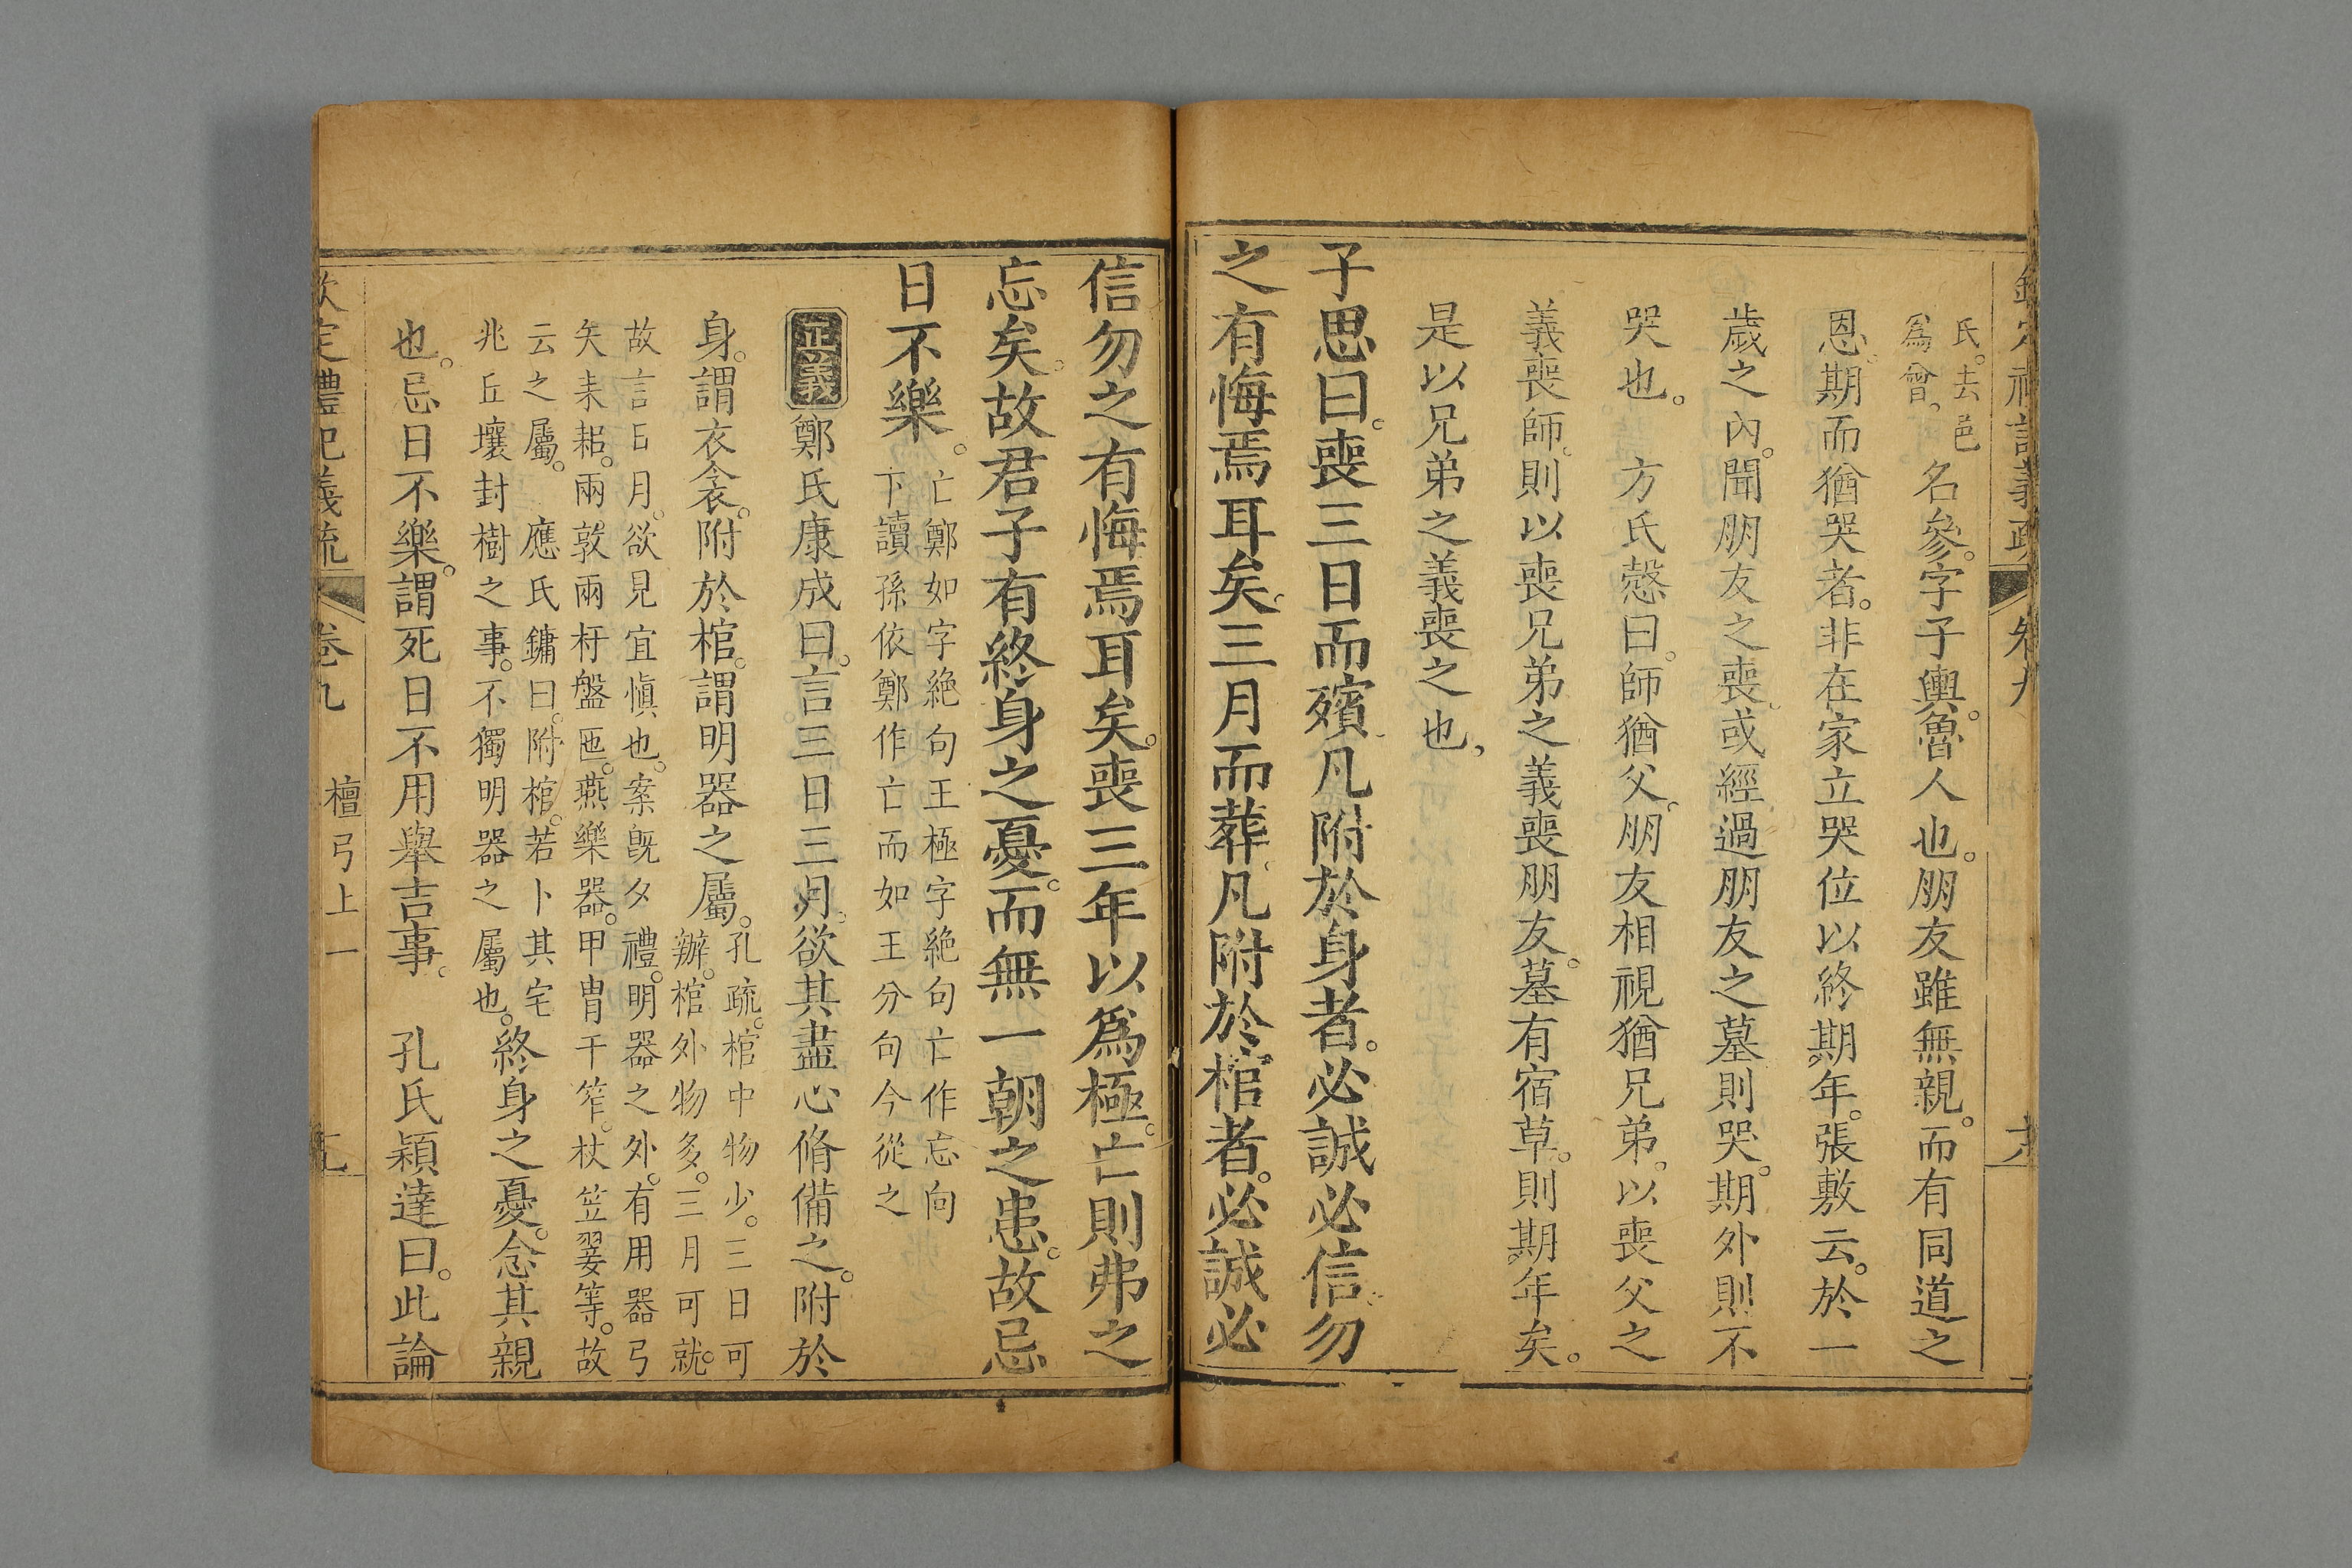 氏。去邑
爲曾。
名參。字子輿。魯人也。朋友雖無親。而有同道之
恩。期而猶哭者。非在家立哭位以終期年。張敷云。於一
歲之內。聞朋友之喪。或經過朋友之墓則哭。期外則不
哭也。 方氏慤曰。師猶父。朋友相視猶兄弟。以喪父之
義喪師。則以喪兄弟之義喪朋友。墓有宿草。則期年矣。
是以兄弟之義喪之也。
子思曰。喪三日而殯。凡附於身者。必誠必信勿
之有悔焉耳矣。三月而葬。凡附於棺者。必誠必
信勿之有悔焉耳矣。喪三年以爲極。亡則弗之
忘矣。故君子有終身之憂。而無一朝之患。故忌
日不樂。
亡鄭如字絶句王極字絶句亡作忘向
下讀孫依鄭作亡而如王分句今從之
正義 鄭氏康成曰。言三日三月。欲其盡心脩備之。附於
身。謂衣衾。附於棺。謂明器之屬。
孔疏。棺中物少。三日可
辦。棺外物多。三月可就。
故言日月。欲見宜愼也。案旣夕禮。明器之外。有用器弓
矢耒耜。兩敦兩杅盤匜。燕樂器。甲胄干笮。杖笠翣等。故
云之屬。 應氏鏞曰。附棺。若卜其宅
兆丘壤封樹之事。不獨明器之屬也。
終身之憂。念其親
也。忌日不樂。謂死日不用舉吉事。 孔氏穎達曰。此論
定禮記義疏 卷九 檀弓上一